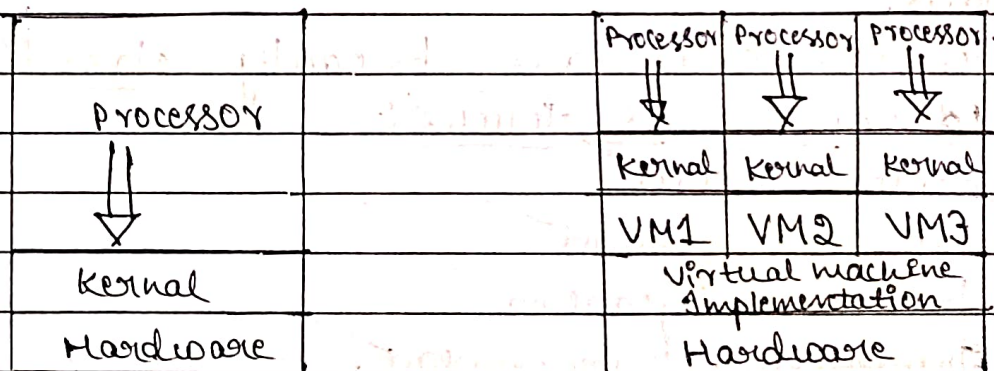 Processor
Kernal
Hardware
Processor Processor Processor
Kernal Kernal Kernal
VM1 VM2 VM3
Virtual machine
Implementation
Hardware